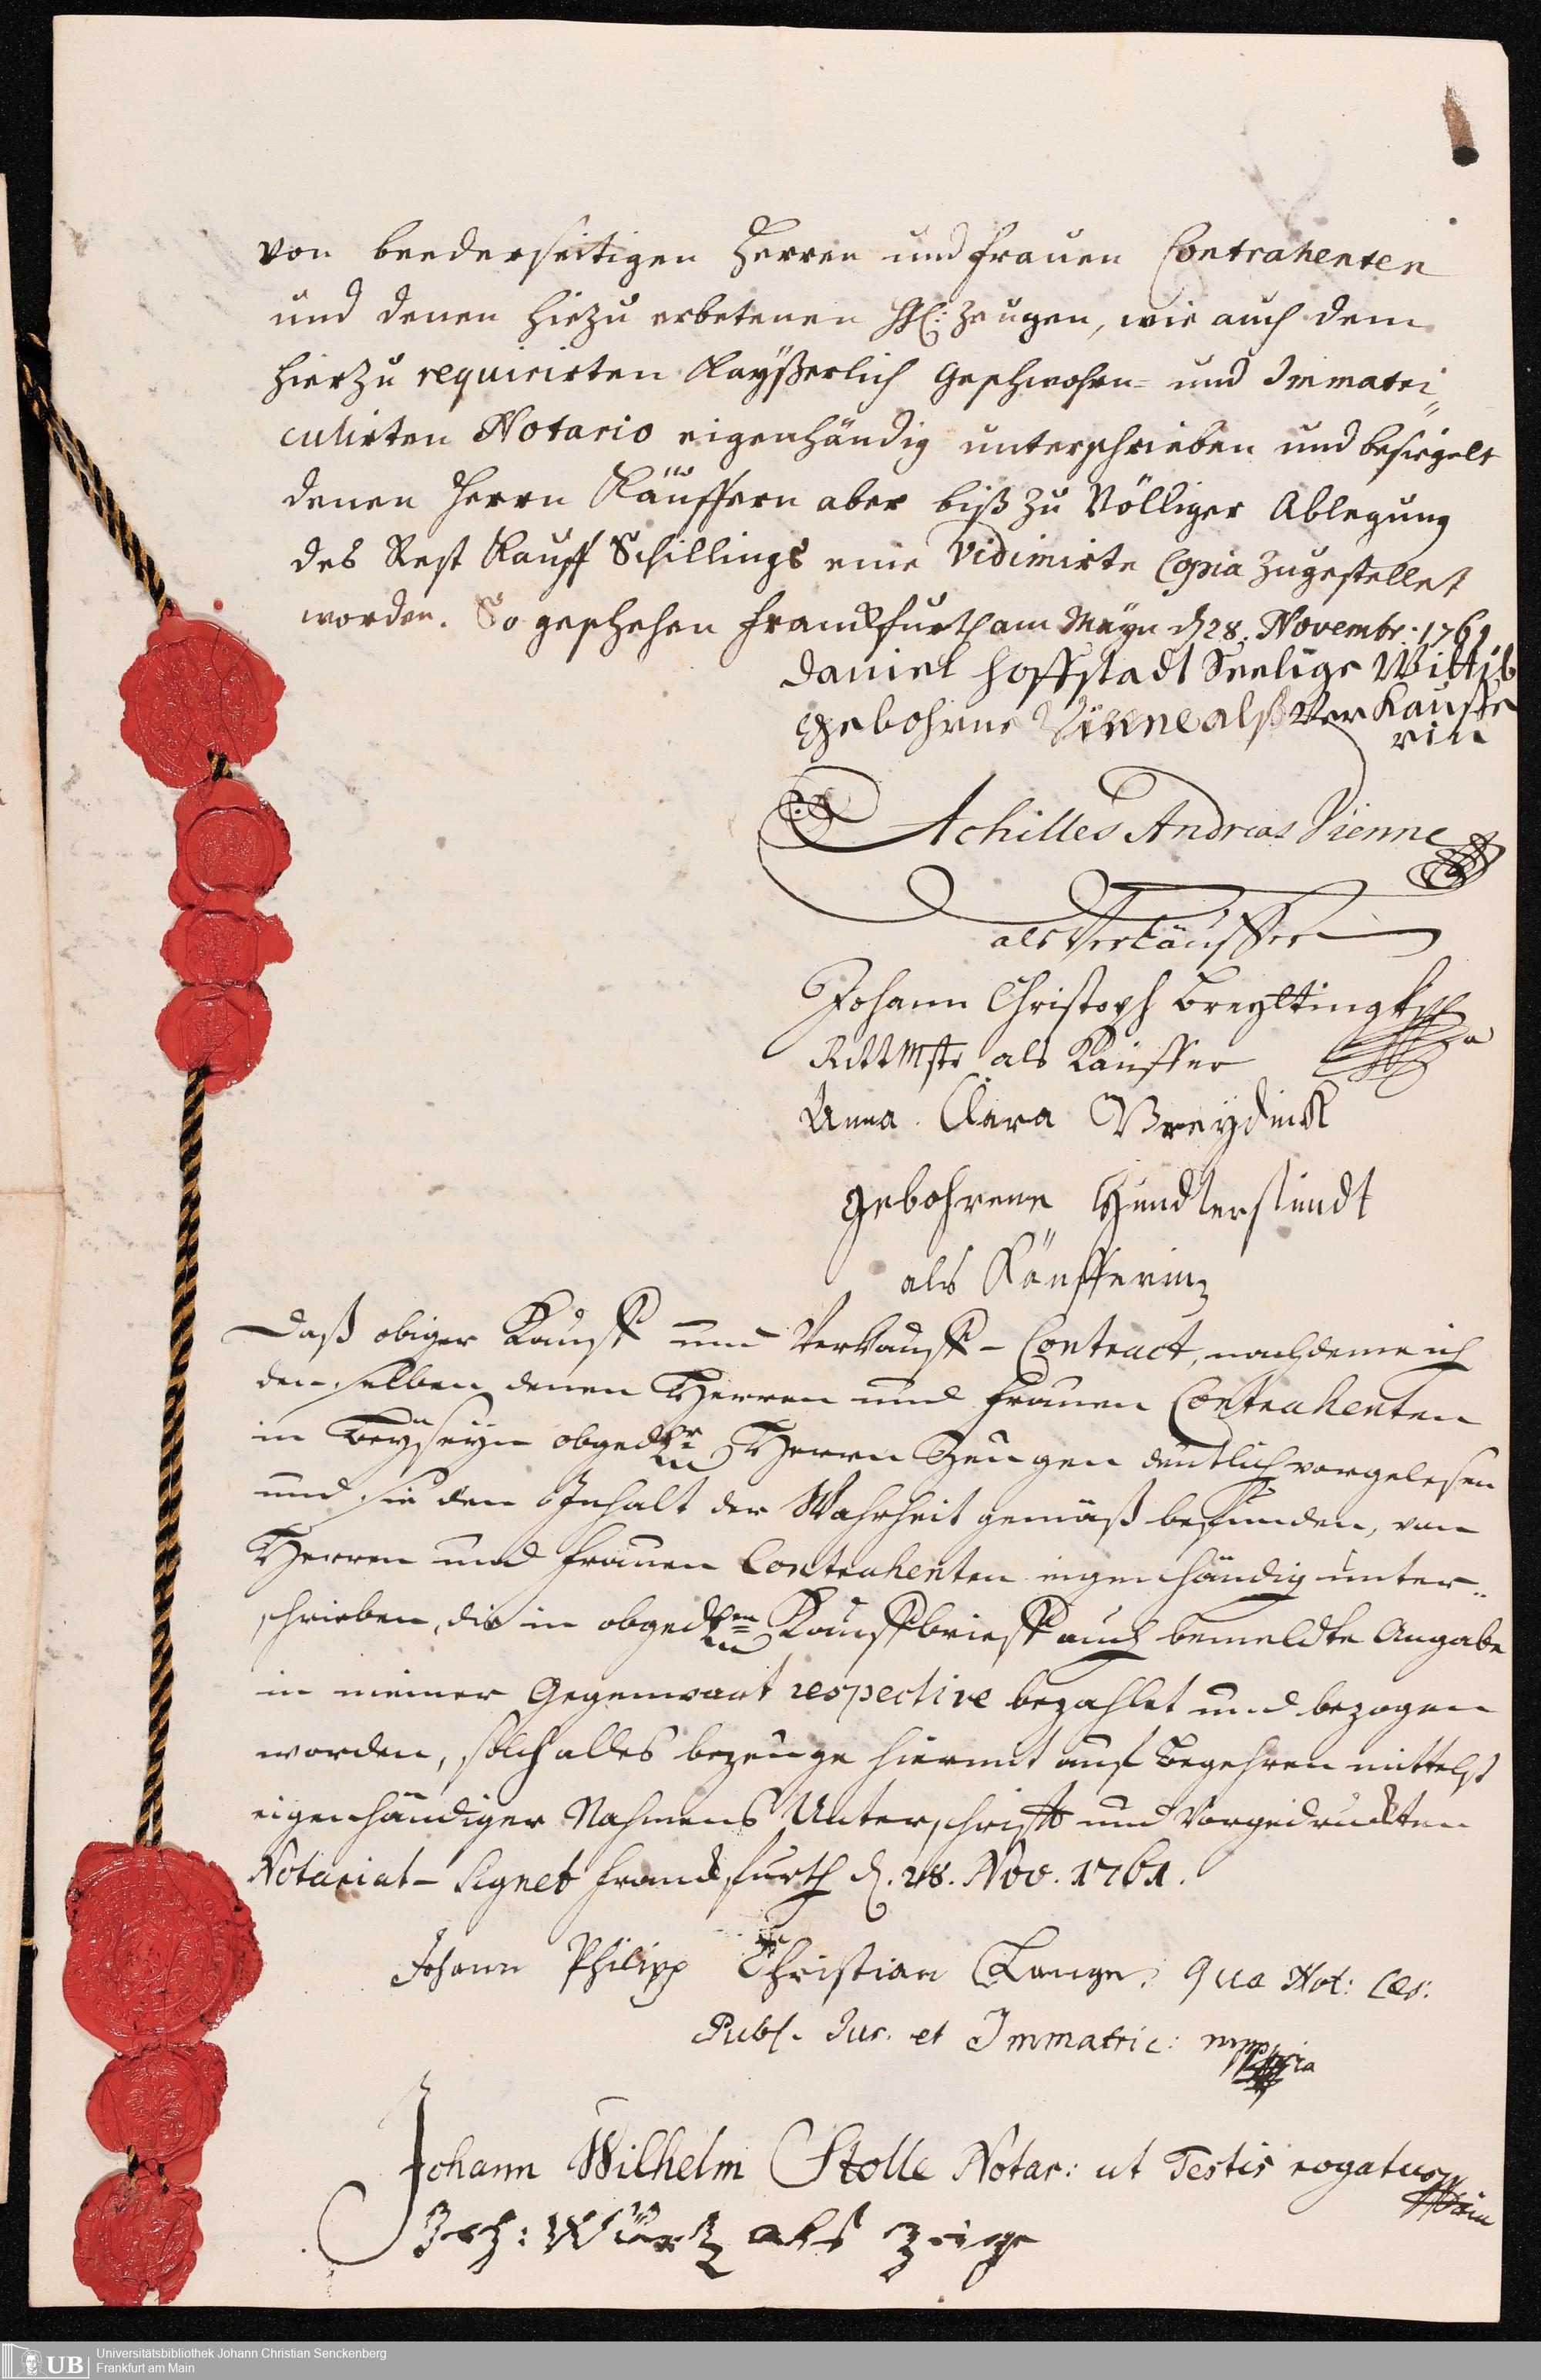 von beederseitigen Herren und Frauen Contrahenten
und denen hiezu erbetenen HH: Zeugen, wie auch dem
hierzu requirirten Kayßerlich Geschwohrn= und Immatri=
culirten Notario eigenhändig unterschrieben und besiegelt
denen Herrn Käuffern aber biß zu Völliger Ablegung
des Rest Kauff Schillings eine Vidimirte Copia zugestellet
worden. So geschehen Franckfurth am Mayn d 28. Novembr: 1761
Daniel Hoffstadt Seelige Wittib
gebohrne Vienne alß Verkauffe
rin
Achilles Andreas Vienne
als Verkäuffer
Johann Christoph
RittMstr als Käuffer
Anna Clara
gebohrene
als Käufferin
Daß obiger Kauff und Verkauff-Contract, nachdeme ich
denselben denen Herren und Frauen Contrahenten
in Beyseyn obged. Herrn Zeugen deutlich vorgelesen
und sie den Inhalt der Wahrheit gemäß befunden, von
Herren und Frauen Contrahenten eigenhändig unter=
schrieben, die in obged. Kauffbrieff auch bemeldte Angabe
in meiner Gegenwart respective bezahlet und bezogen
worden, solch alles bezeuge hiermit auf Begehren mittelst
eigenhändiger Nahmens Unterschrifft und Vorgedruckten
Notariat-Signet Franckfurth d. 28. Nov. 1761.
Johann Philipp Christian Lange, qua Not: Cæs:
Publ. Jur. et Immatric: mppria
Johann Wilhelm Stolle Notar: ut Testis rogatus mppria
Joh: Würtz als Zeige
UB Universitätsbibliothek Johann Christian Senckenberg
Frankfurt am Main